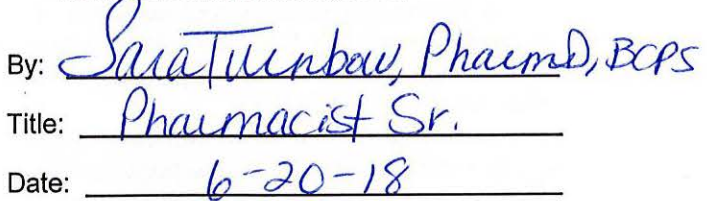 By: Sara Turnbow, PharmD, BCPS
Title: Pharmacist Sr.
Date: 6-20-18